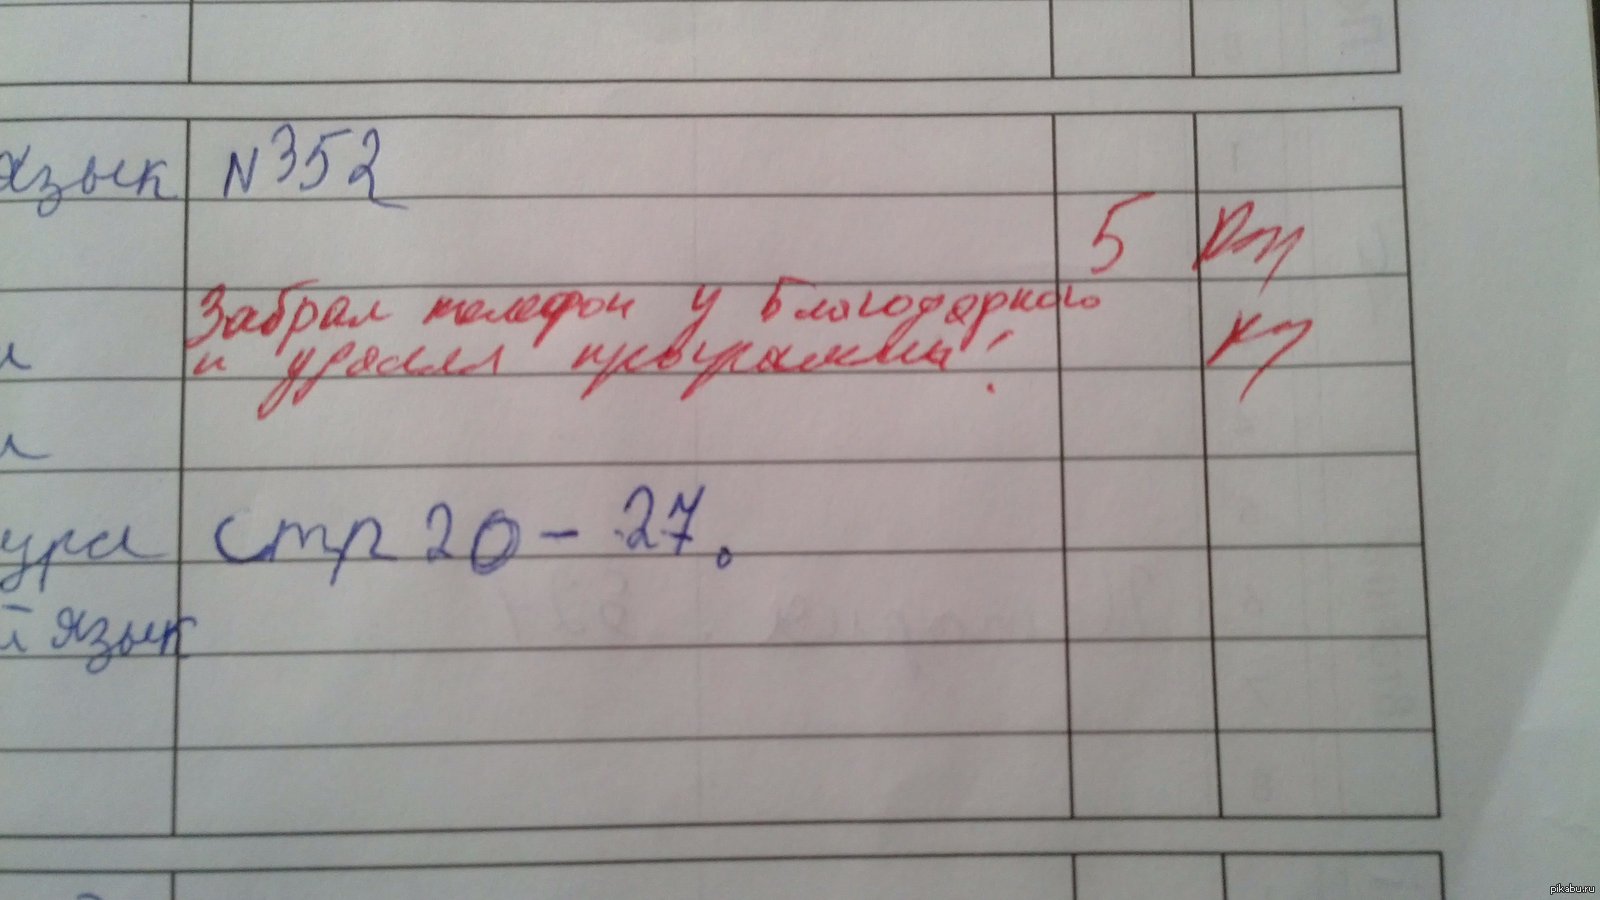 язык №352
5
Забрал телефон у Благодарного
и удалил программы!
ура стр 20-27.
й язык
pikabu.ru